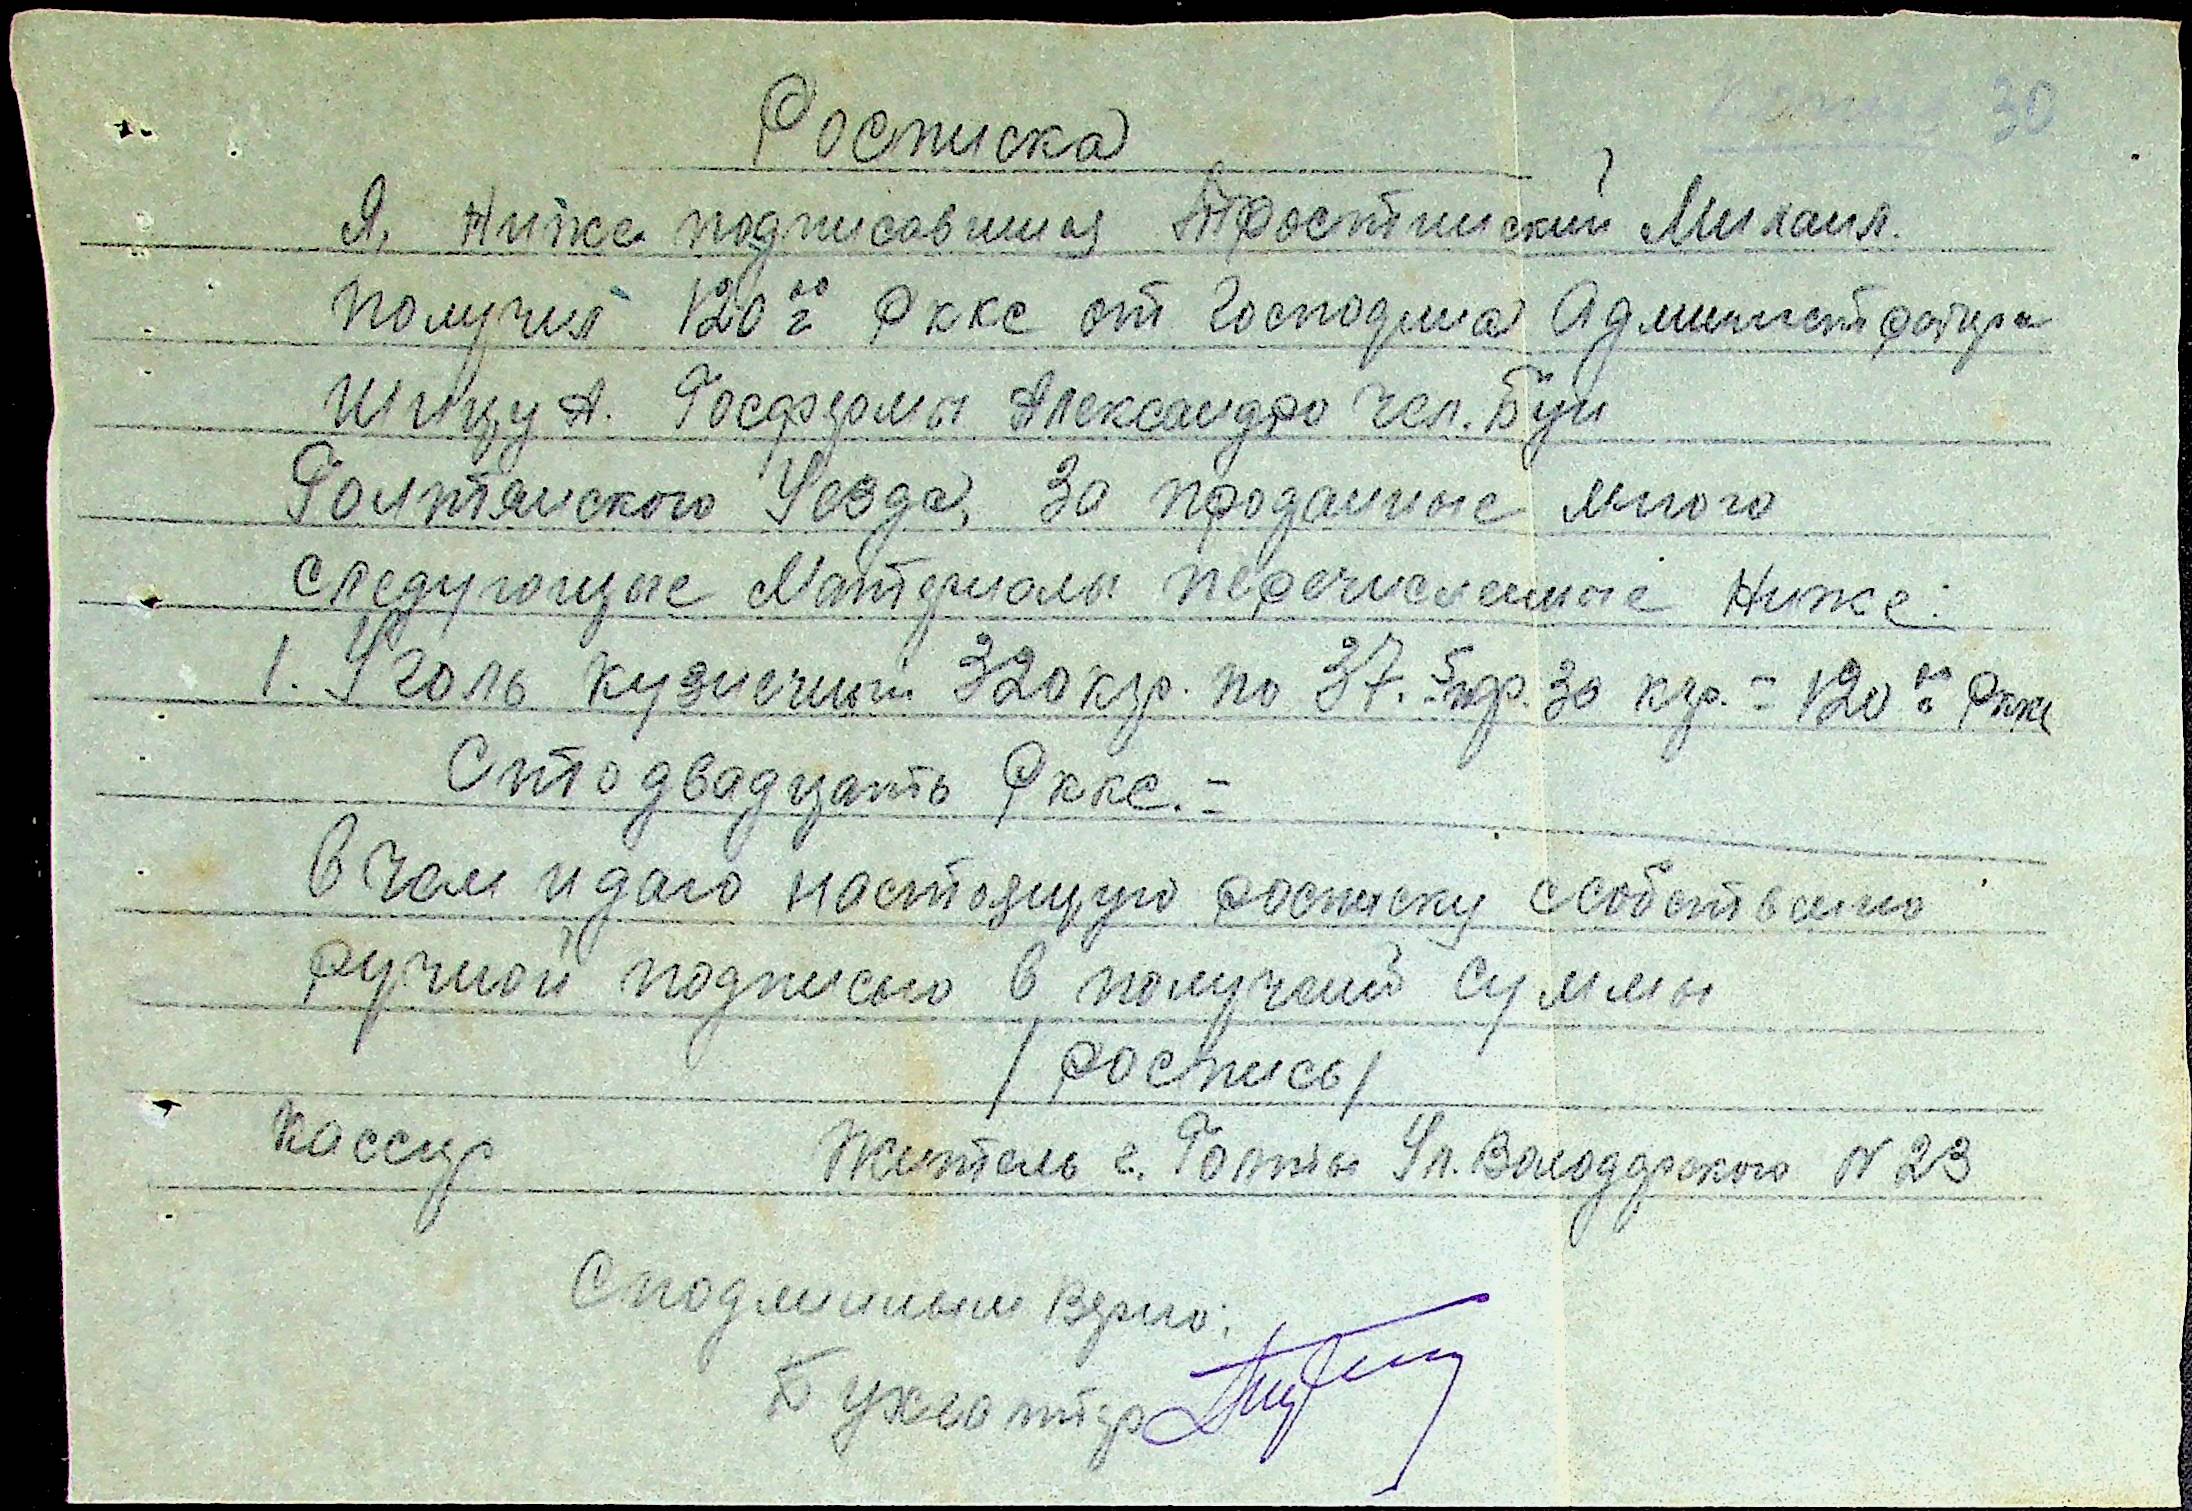 Росписка
30
Я, Ниже подписавшийся Тростинский Михаил.
получил 120 00 Рккс от Господина Администратора
Шицу А. Госфермы Александро чел. Буи
Голтянского Уезда, за проданные много
следующые Материолы перечисленные Ниже:
1. Уголь кузнечный 320 кгр. по 37.5 пф. за кгр. = 120 00 Рккс
Сто двадцать Рккс. =
В чем и даю настоящую росписку с собственно
ручной подписью в получений суммы
/ роспись /
Кассир
Житель г. Голты Ул. Володарского N 23
С подлинным верно:
Бухгалтер